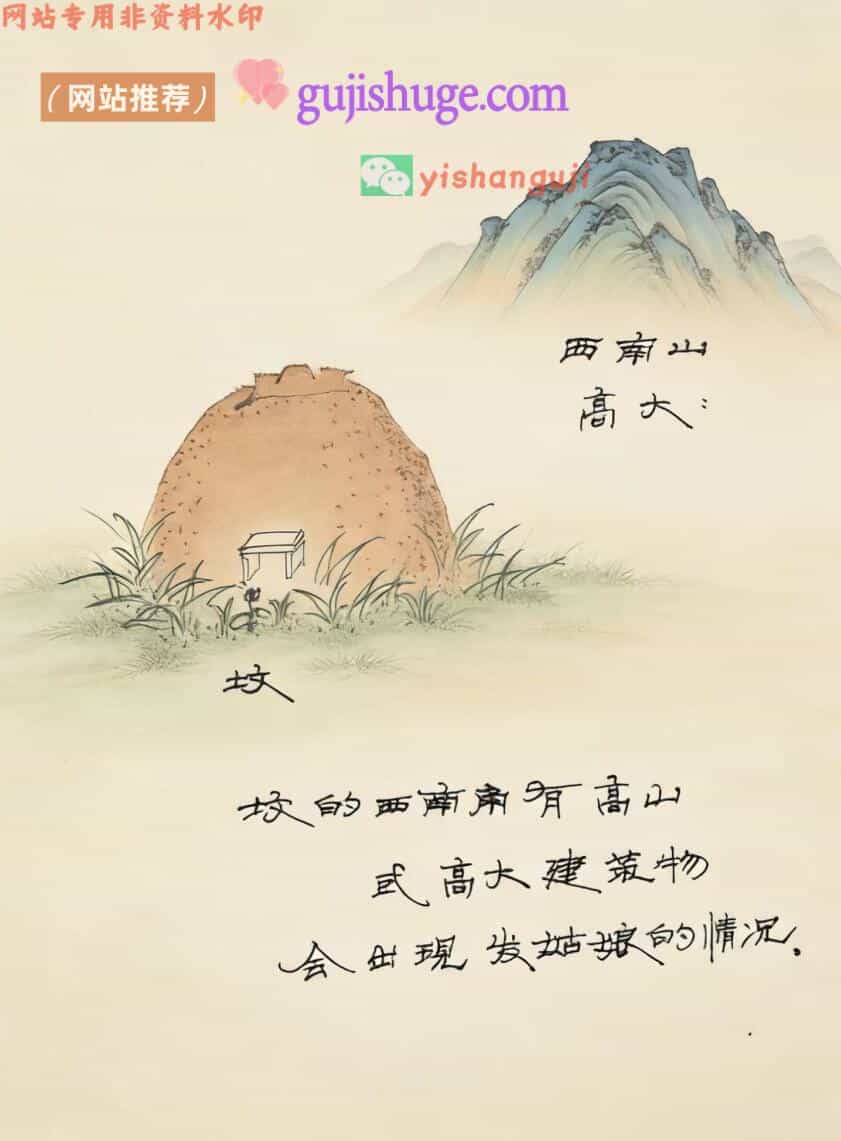 网站专用非资料水印
（网站推荐） gujishuge.com
yishanguji
西南山
高大：
坟
坟的西南角有高山
或高大建筑物
会出现发姑娘的情况。